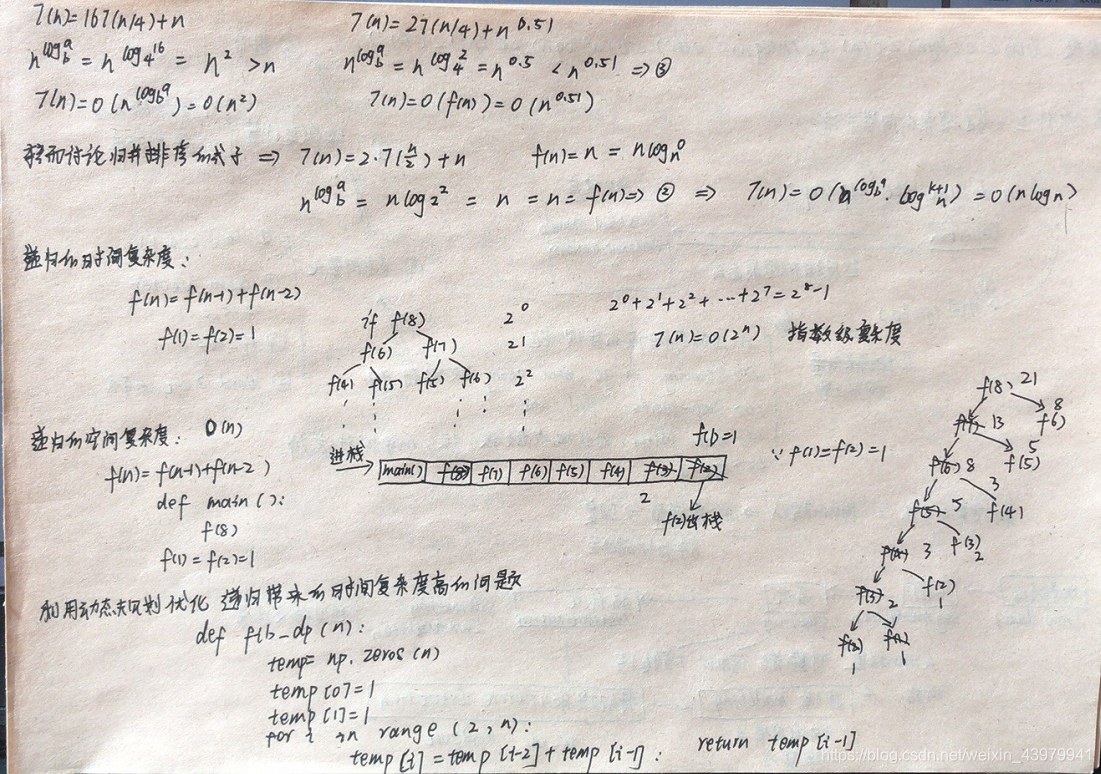 T(n)=16T(n/4)+n
n^log_b^a = n^log_4^16 = n^2 > n
T(n)=O(n^log_b^a)=O(n^2)
T(n)=2T(n/4)+n^0.51
n^log_b^a = n^log_4^2 = n^0.5 < n^0.51 ⇒ ③
T(n)=O(f(n))=O(n^0.51)
讨论归并排序的式子 ⇒ T(n)=2·T(n/2)+n f(n)=n=nlog_n^0
n^log_b^a = nlog_2^2 = n = n = f(n) ⇒ ② ⇒ T(n)=O(n^log_b^a·log_n^k+1)=O(nlogn)
递归的时间复杂度:
f(n)=f(n-1)+f(n-2)
f(1)=f(2)=1
if f(8) 2^0
f(6) f(7) 2^1
f(4) f(5) f(5) f(6) 2^2
2^0+2^1+2^2+…+2^7=2^8-1
T(n)=O(2^n) 指数级复杂度
递归的空间复杂度: O(n)
f(n)=f(n-1)+f(n-2)
def main():
f(8)
f(1)=f(2)=1
进栈
main() f(8) f(7) f(6) f(5) f(4) f(3) f(2)
2
f(2)出栈
∵ f(1)=f(2)=1
f(8) 21
f(7) 13 f(6) 8
f(6) 8 f(5) 5
f(5) 5 f(4) 3
f(4) 3 f(3) 2
f(3) 2 f(2) 1
f(2) 1 f(1) 1
利用动态规划优化 递归带来的时间复杂度高的问题
def fib_dp(n):
temp= np.zeros(n)
temp[0]=1
temp[1]=1
for i in range(2,n):
temp[i]=temp[i-2]+temp[i-1]: return temp[i-1]
https://blog.csdn.net/weixin_43979941